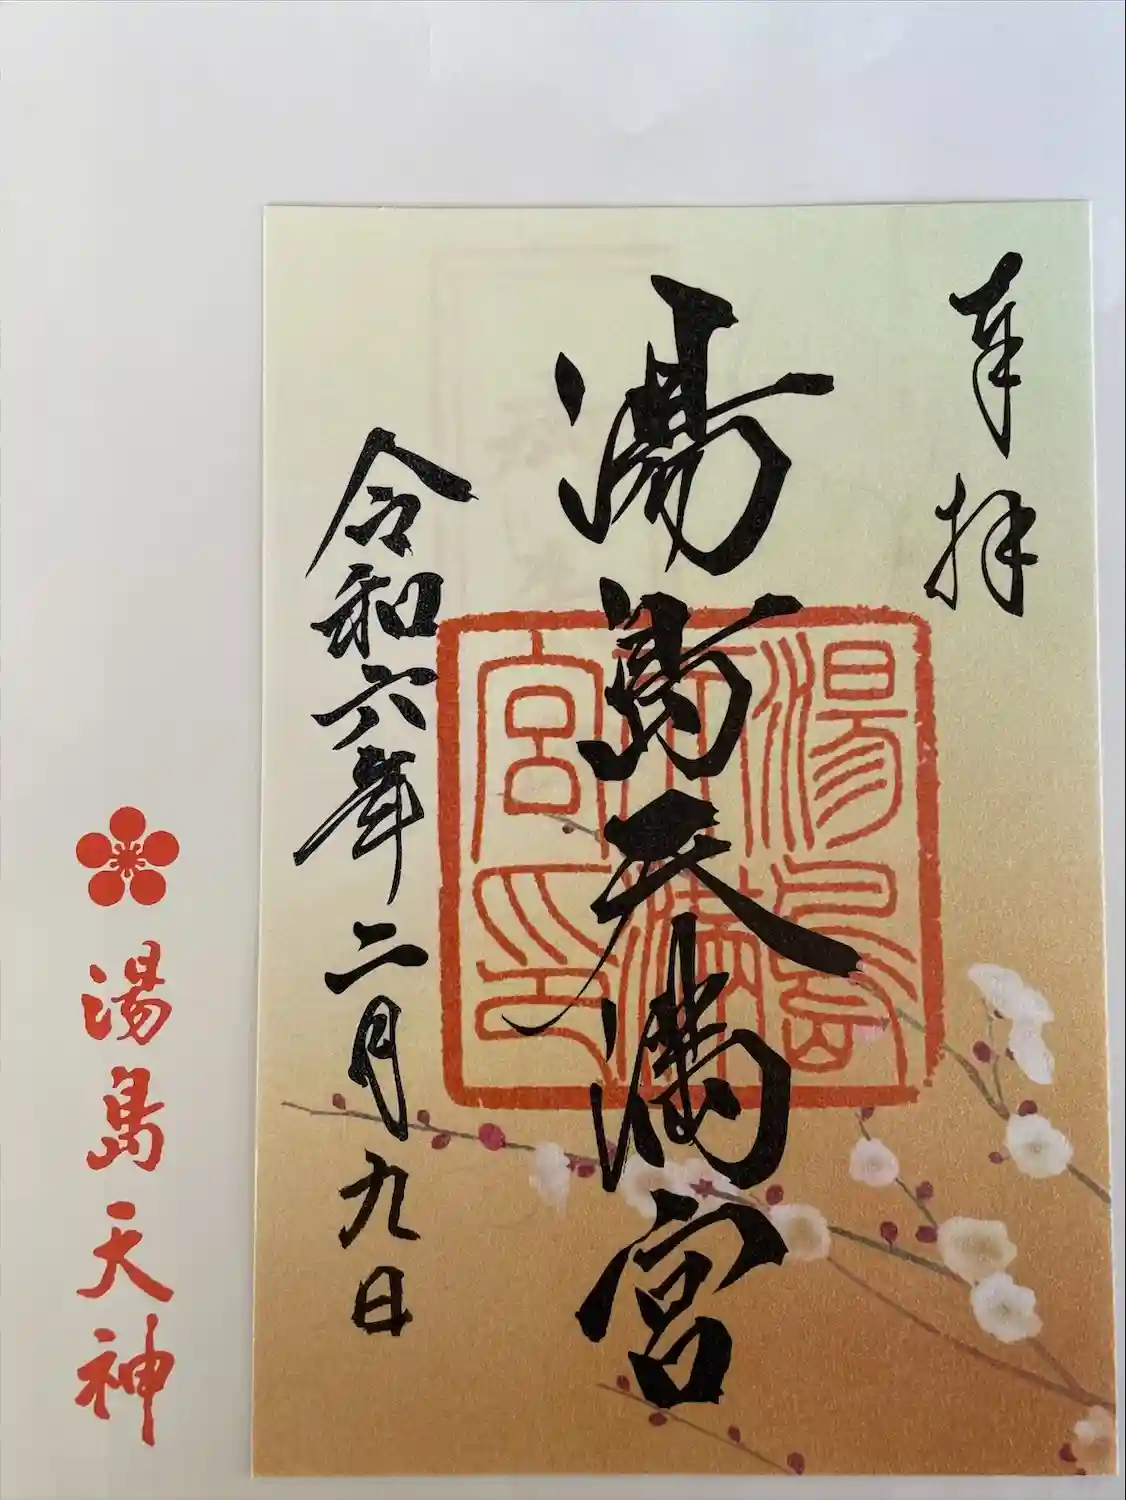 奉拝
湯島天満宮
令和六年二月九日
湯島天満宮印
湯島天神